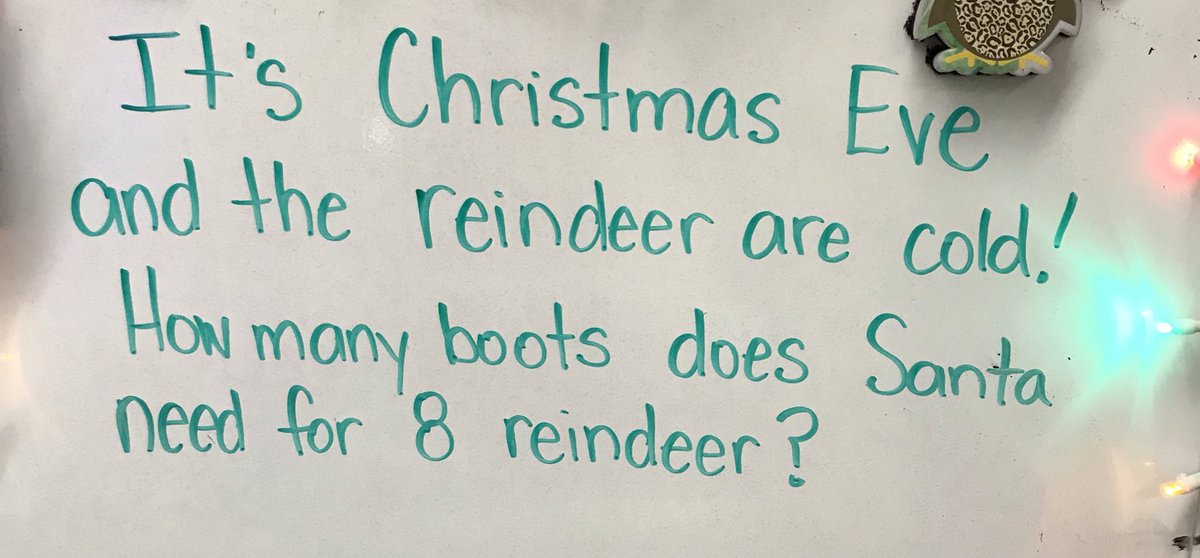 It's Christmas Eve
and the reindeer are cold!
How many boots does Santa
need for 8 reindeer?